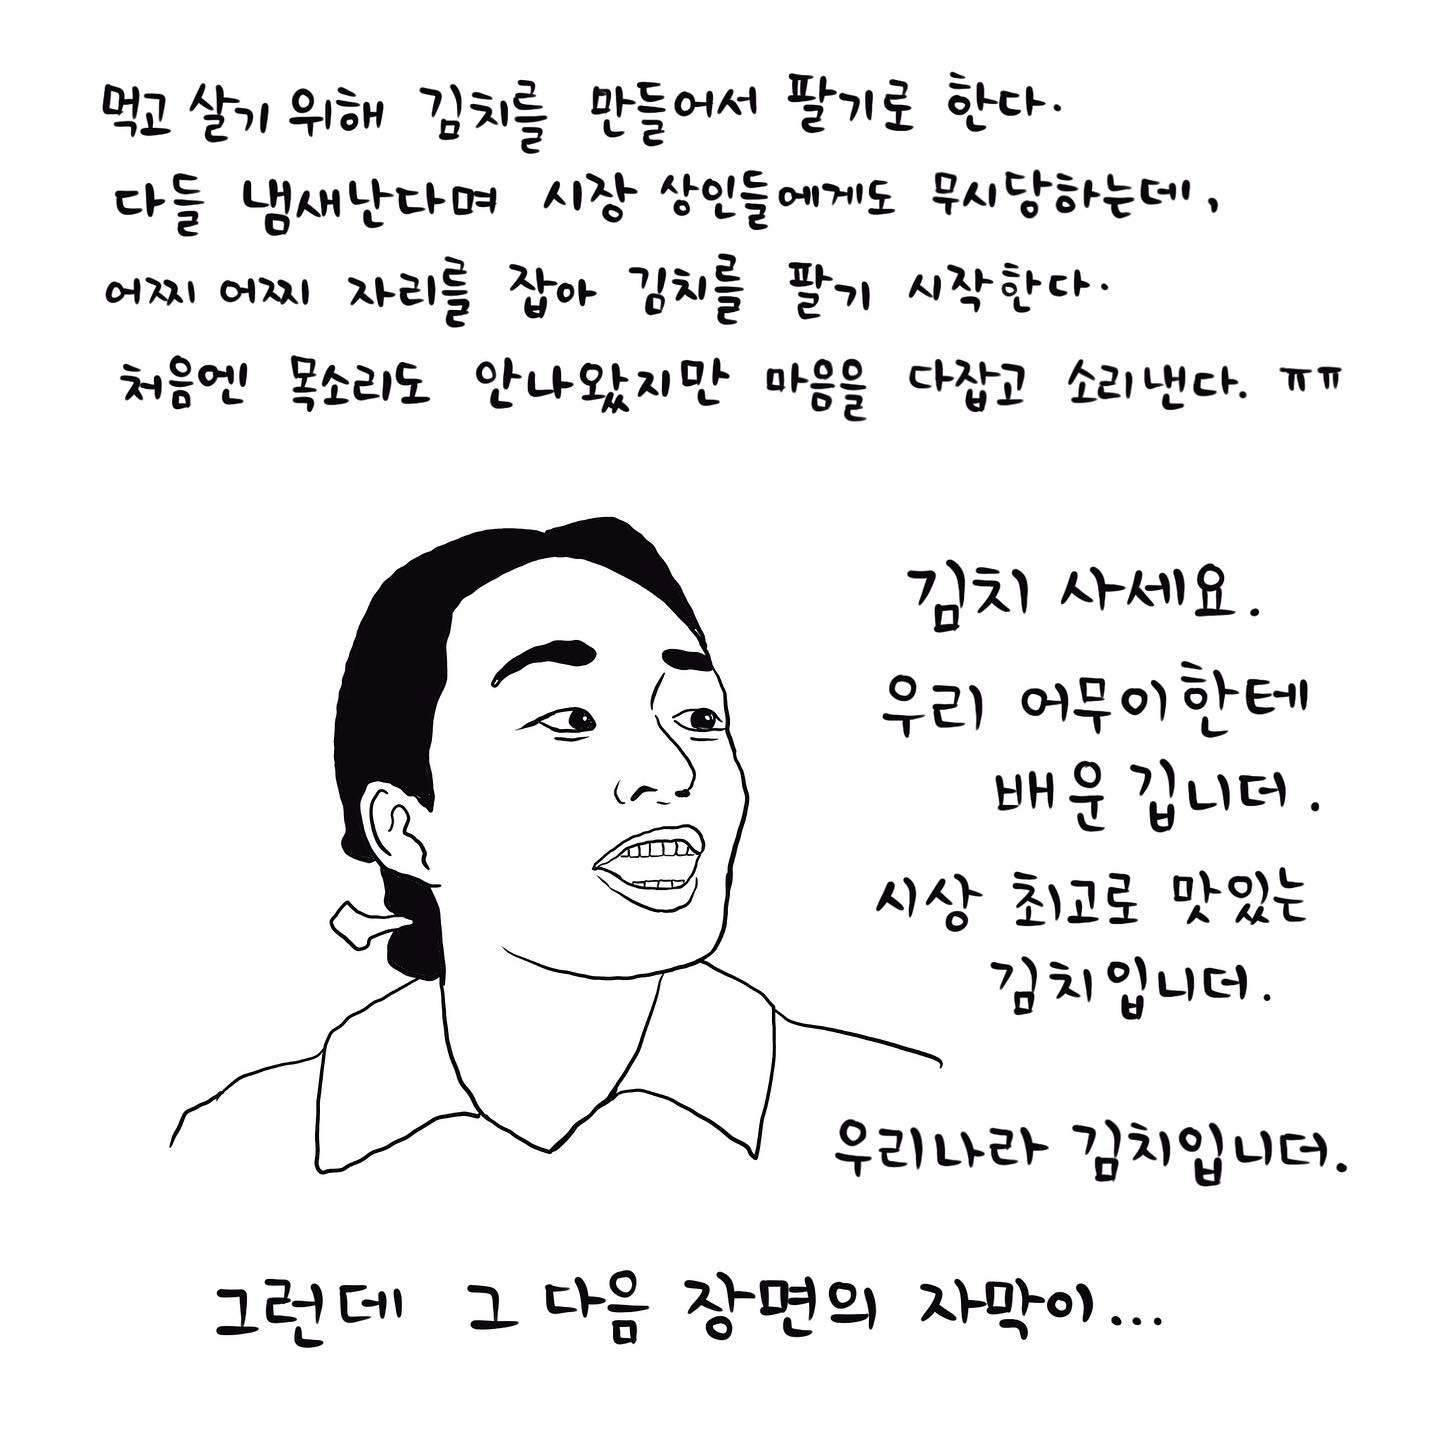 먹고 살기 위해 김치를 만들어서 팔기로 한다.
다들 냄새난다며 시장 상인들에게도 무시당하는데,
어찌 어찌 자리를 잡아 김치를 팔기 시작한다.
처음엔 목소리도 안나왔지만 마음을 다잡고 소리낸다. ㅠㅠ
김치 사세요.
우리 어무이한테
배운 깁니더.
시상 최고로 맛있는
김치입니더.
우리나라 김치입니더.
그런데 그 다음 장면의 자막이...